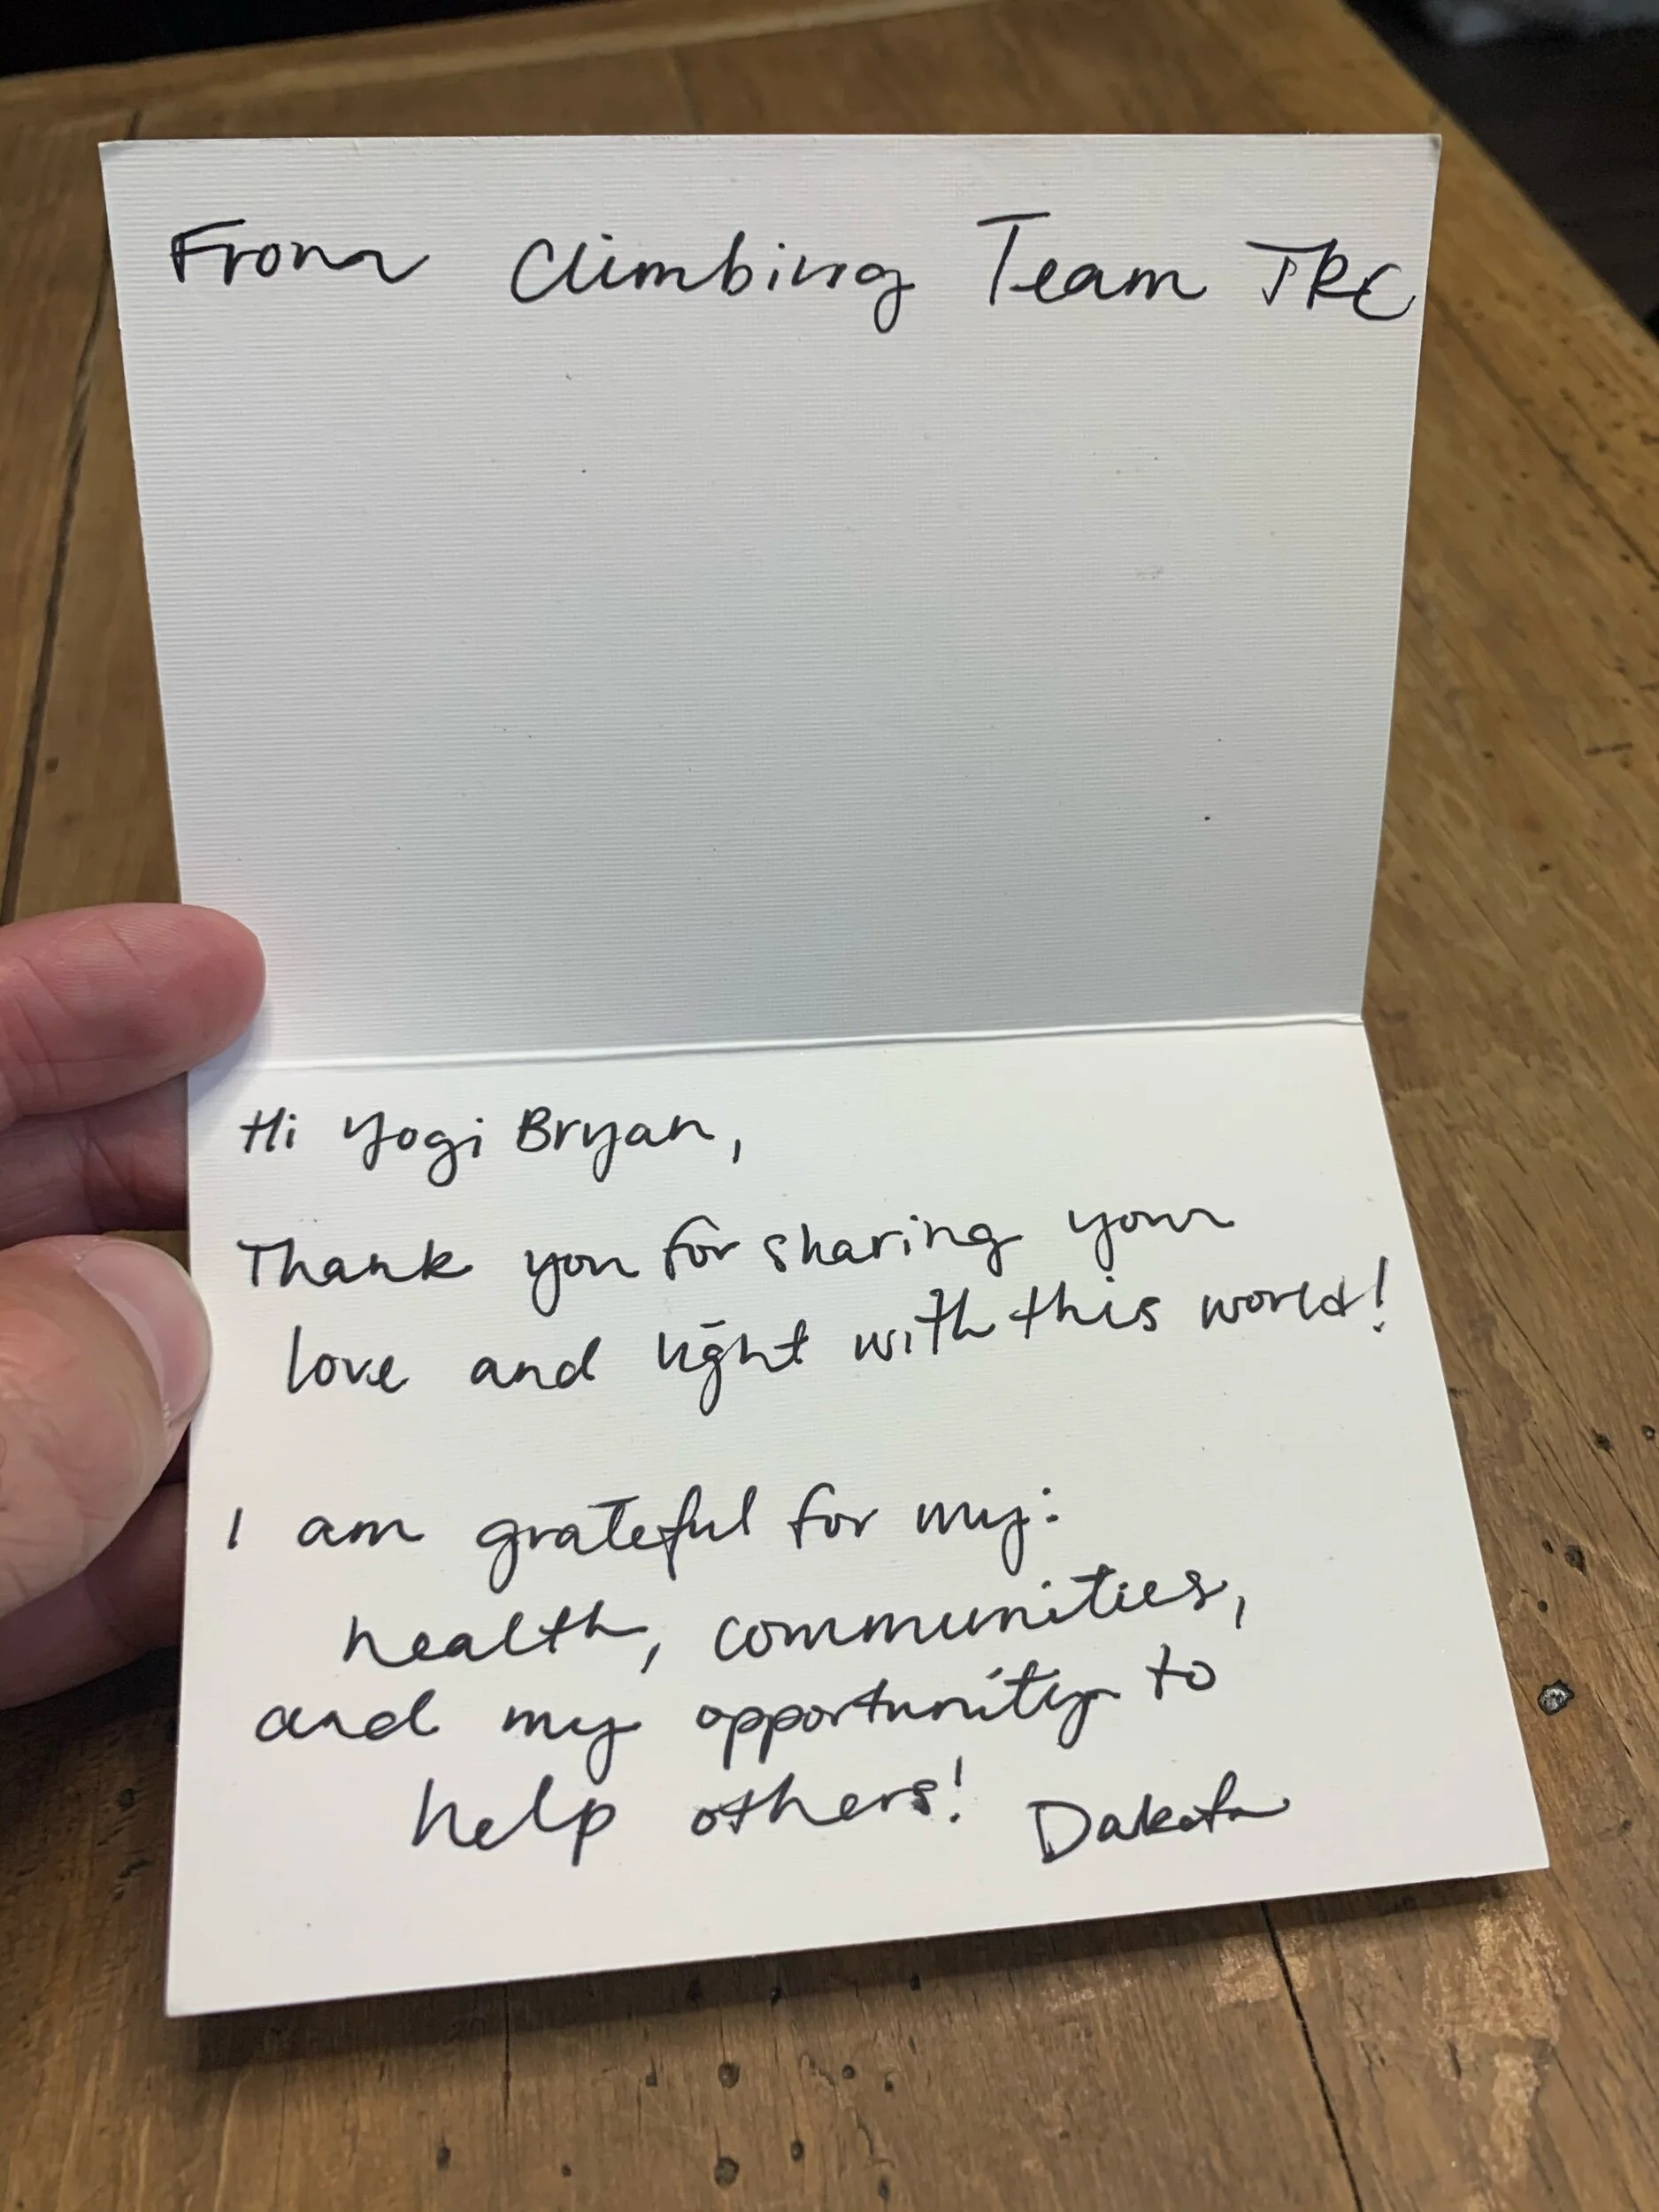 From Climbing Team TRC
Hi Yogi Bryan,
Thank you for sharing your
love and light with this world!
I am grateful for my:
health, communities,
and my opportunity to
help others! Dakota